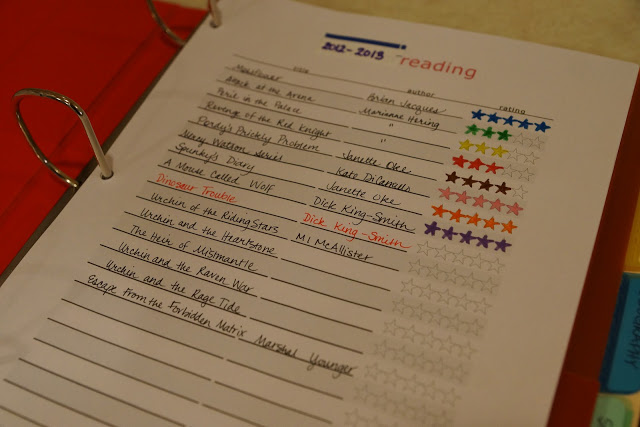 2012-2013 reading
title author rating
Mossflower Brian Jacques
Attack at the Arena Marianne Hering
Peril in the Palace "
Revenge of the Red Knight "
Pordy's Prickly Problem Janette Oke
Mercy Watson series Kate DiCamillo
Spunky's Diary Janette Oke
A Mouse Called Wolf Dick King-Smith
Dinosaur Trouble Dick King-Smith
Urchin of the Riding Stars M I McAllister
Urchin and the Heartstone
The Heir of Mistmantle
Urchin and the Raven War
Urchin and the Rage Tide
Escape from the Forbidden Matrix Marshal Younger